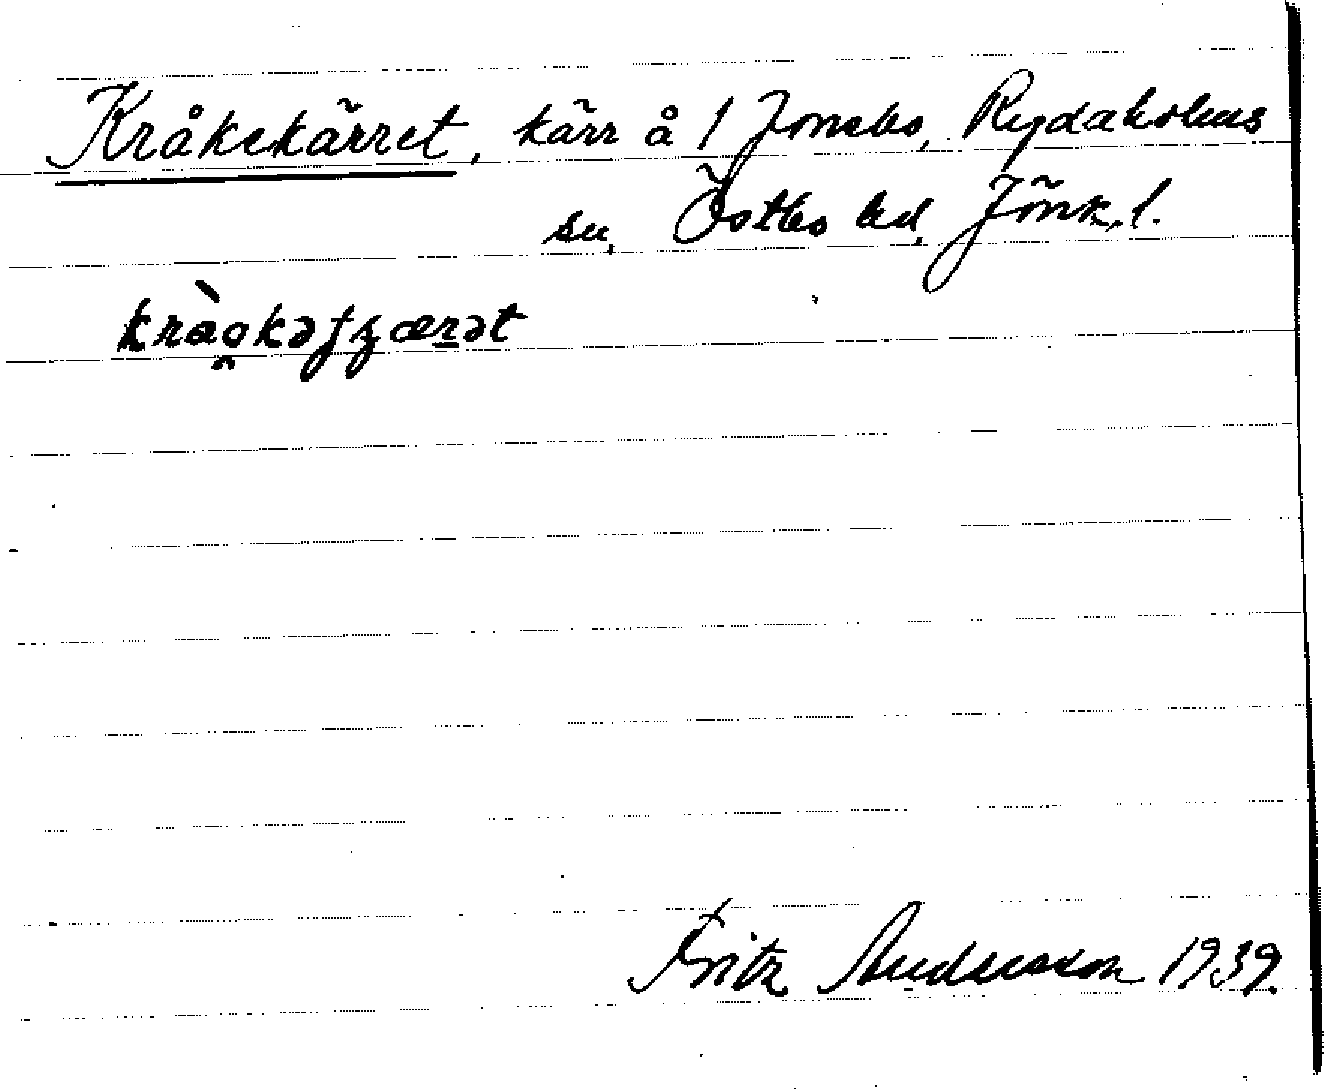 Kråkekärret, kärr å 1 Jonsbo, Rydaholms
sn, Östbo hd, Jönk. l.
Fritz Andersson 1939.